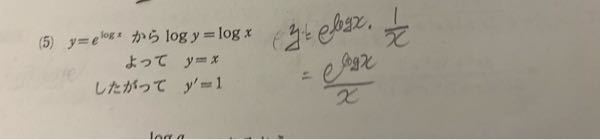 (5) y=e^{log x} から log y=log x
よって y=x
したがって y'=1
y'=e^{logx}・1/x
=e^{logx}/x